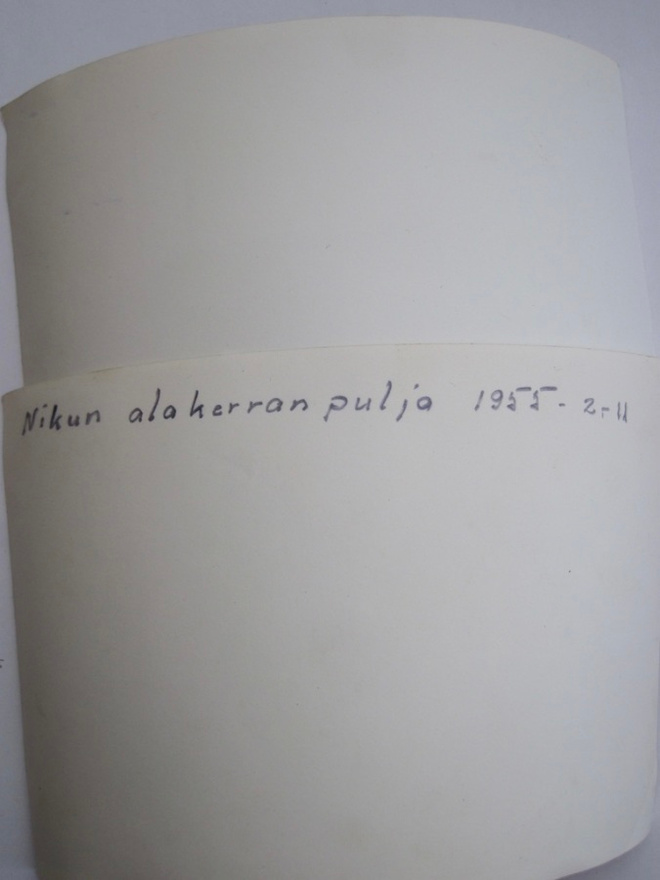 Nikun alakerran pulja 1955 - 2.-11